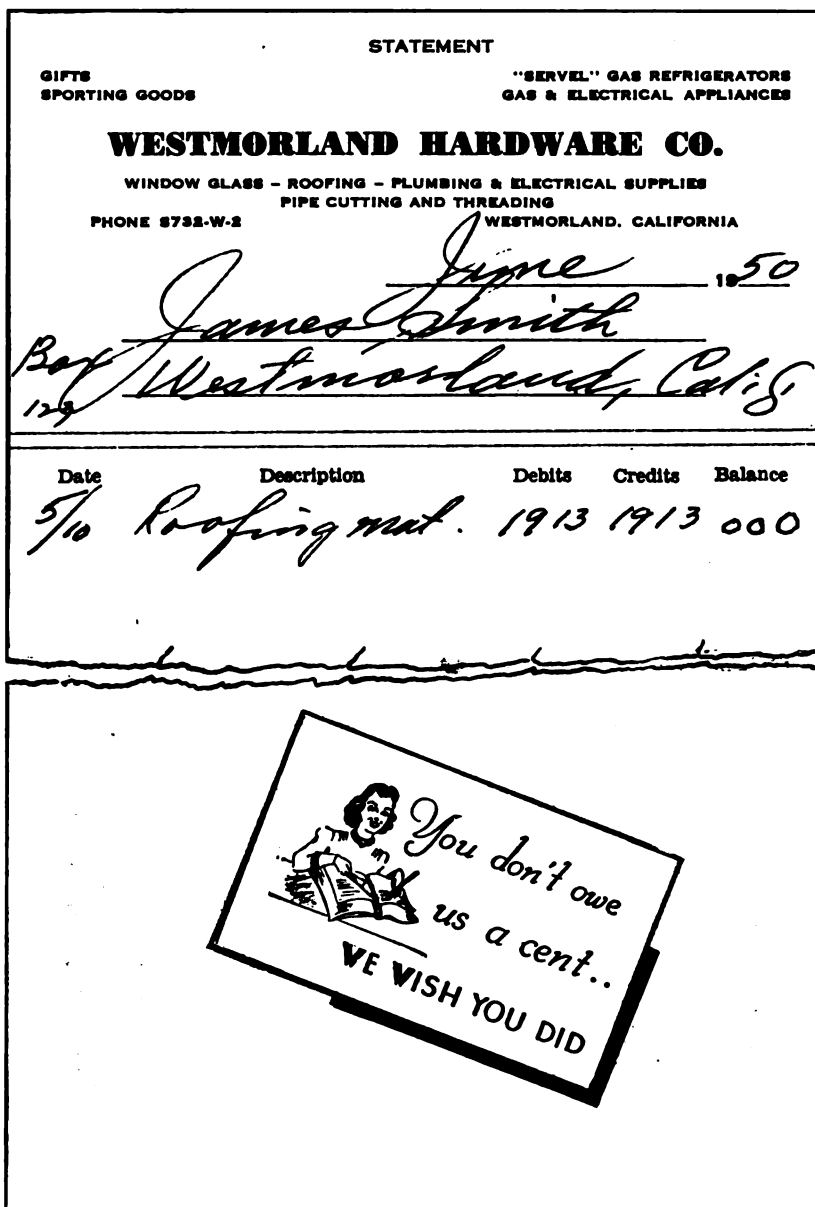 STATEMENT
GIFTS
SPORTING GOODS
"SERVEL" GAS REFRIGERATORS
GAS & ELECTRICAL APPLIANCES
WESTMORLAND HARDWARE CO.
WINDOW GLASS – ROOFING – PLUMBING & ELECTRICAL SUPPLIES
PIPE CUTTING AND THREADING
PHONE 8732-W-2 WESTMORLAND, CALIFORNIA
June 1950
James Smith
Box Westmorland, Calif
129
Date Description Debits Credits Balance
5/10 Roofing mat. 1913 1913 000
You don't owe
us a cent..
WE WISH YOU DID